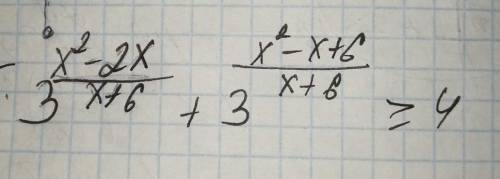 3^((x²-2x)/(x+6)) + 3^((x²-x+6)/(x+6)) ≥ 4